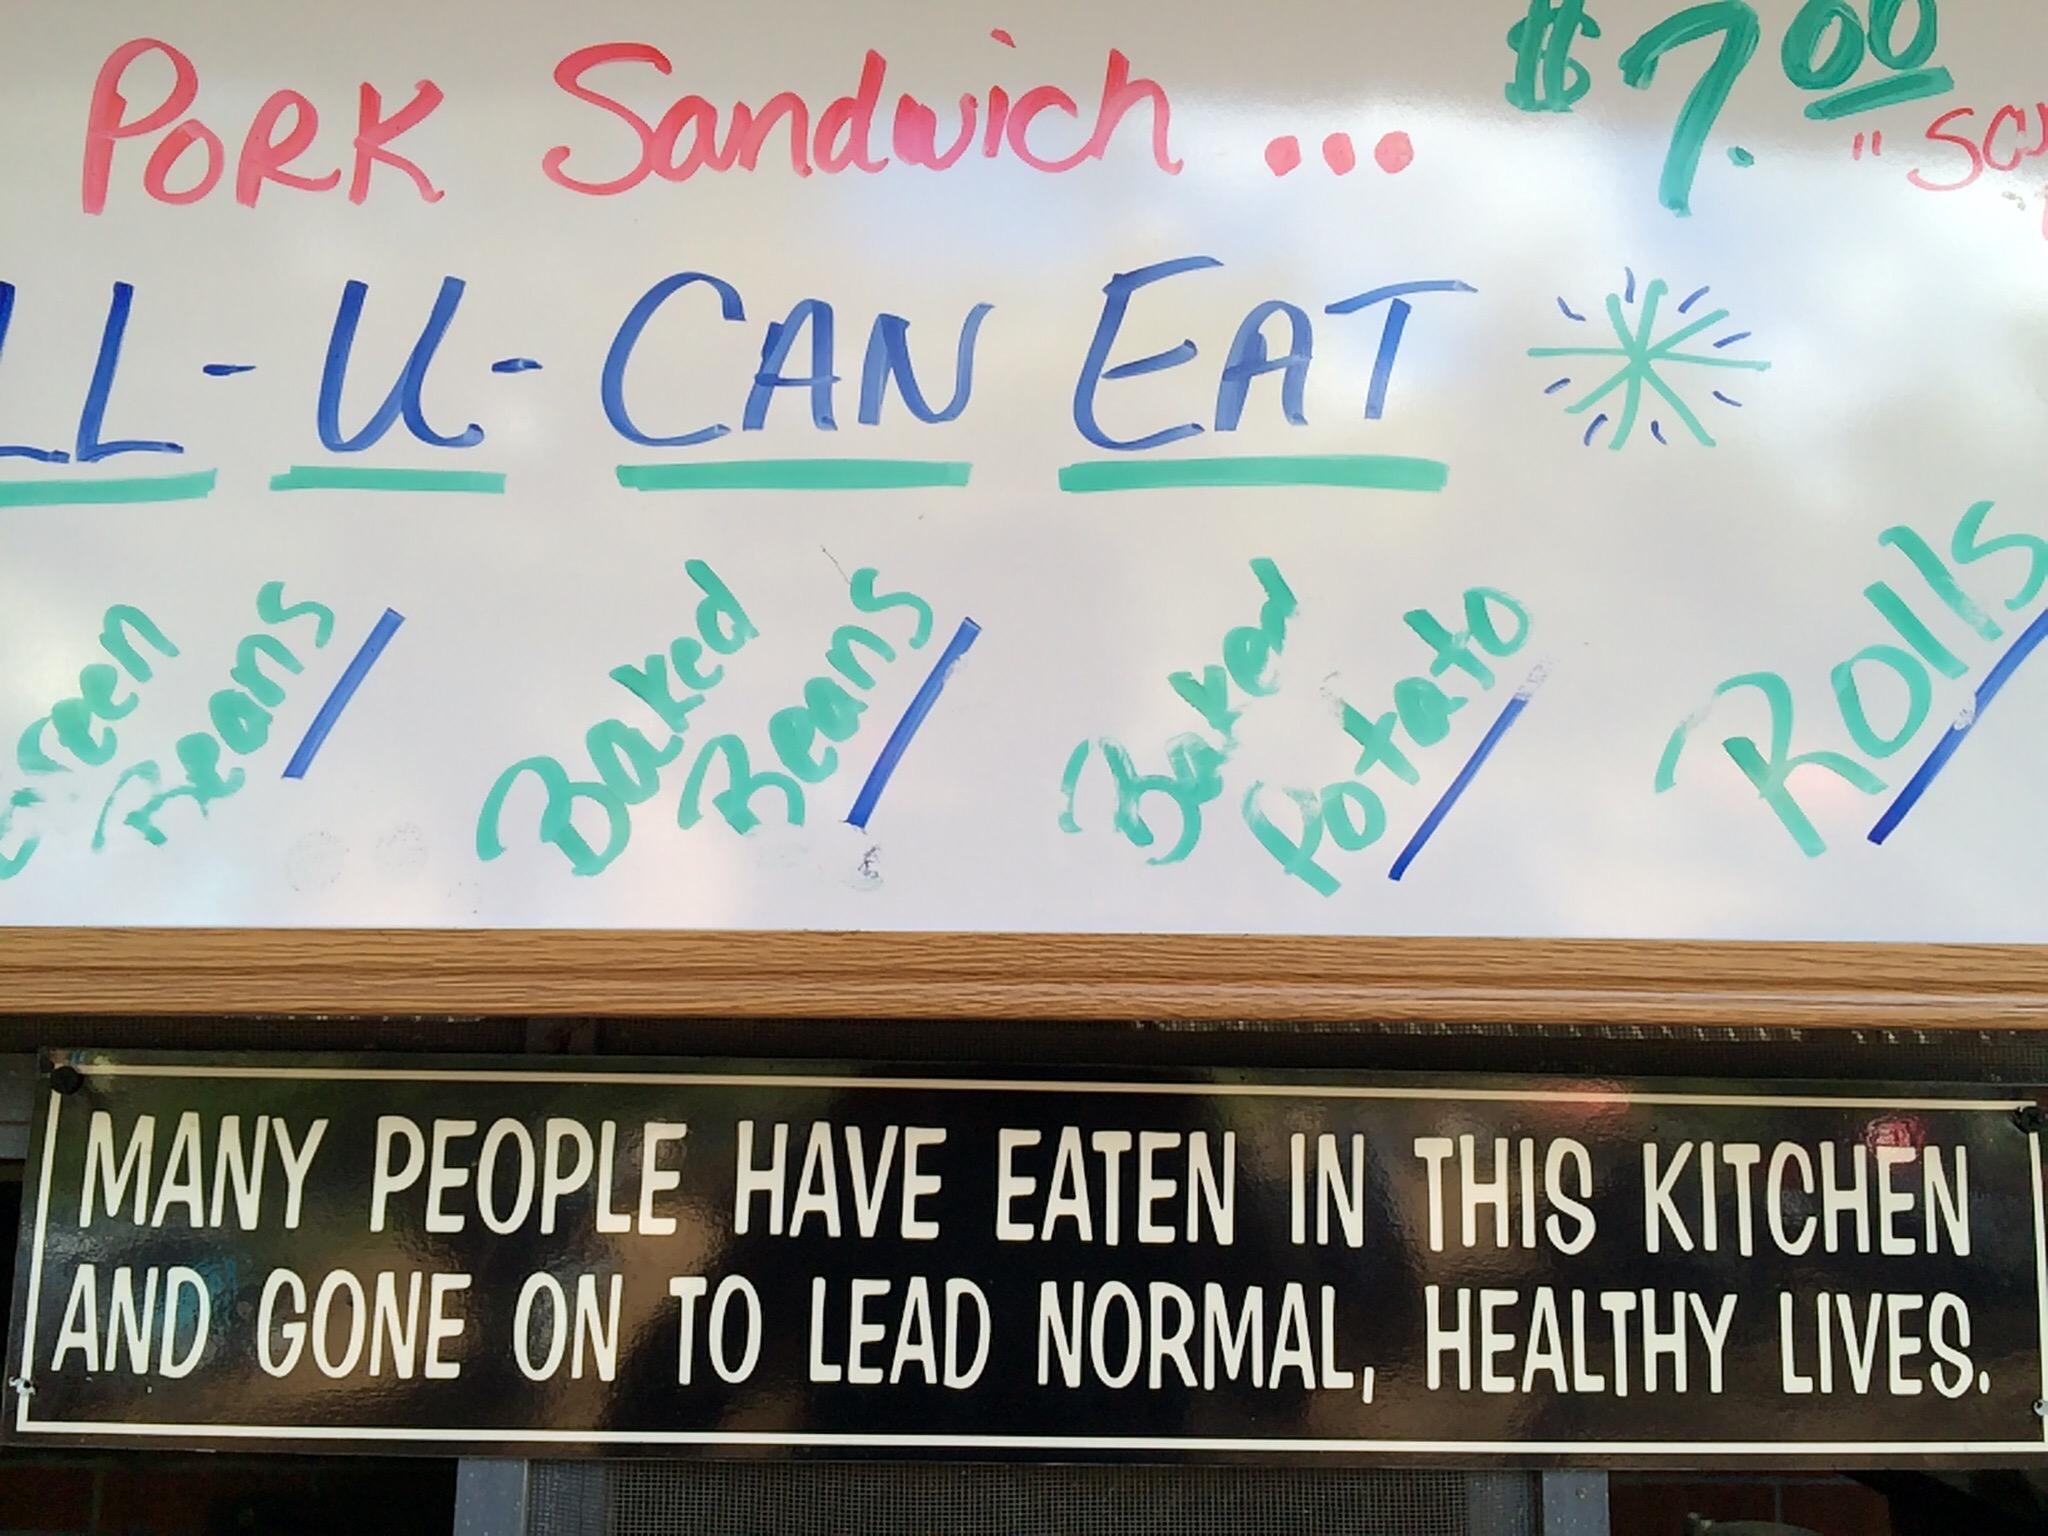 PORK Sandwich ... $7.00
LL-U-CAN EAT
Green Beans / Baked Beans / Baked Potato / Rolls /
MANY PEOPLE HAVE EATEN IN THIS KITCHEN
AND GONE ON TO LEAD NORMAL, HEALTHY LIVES.